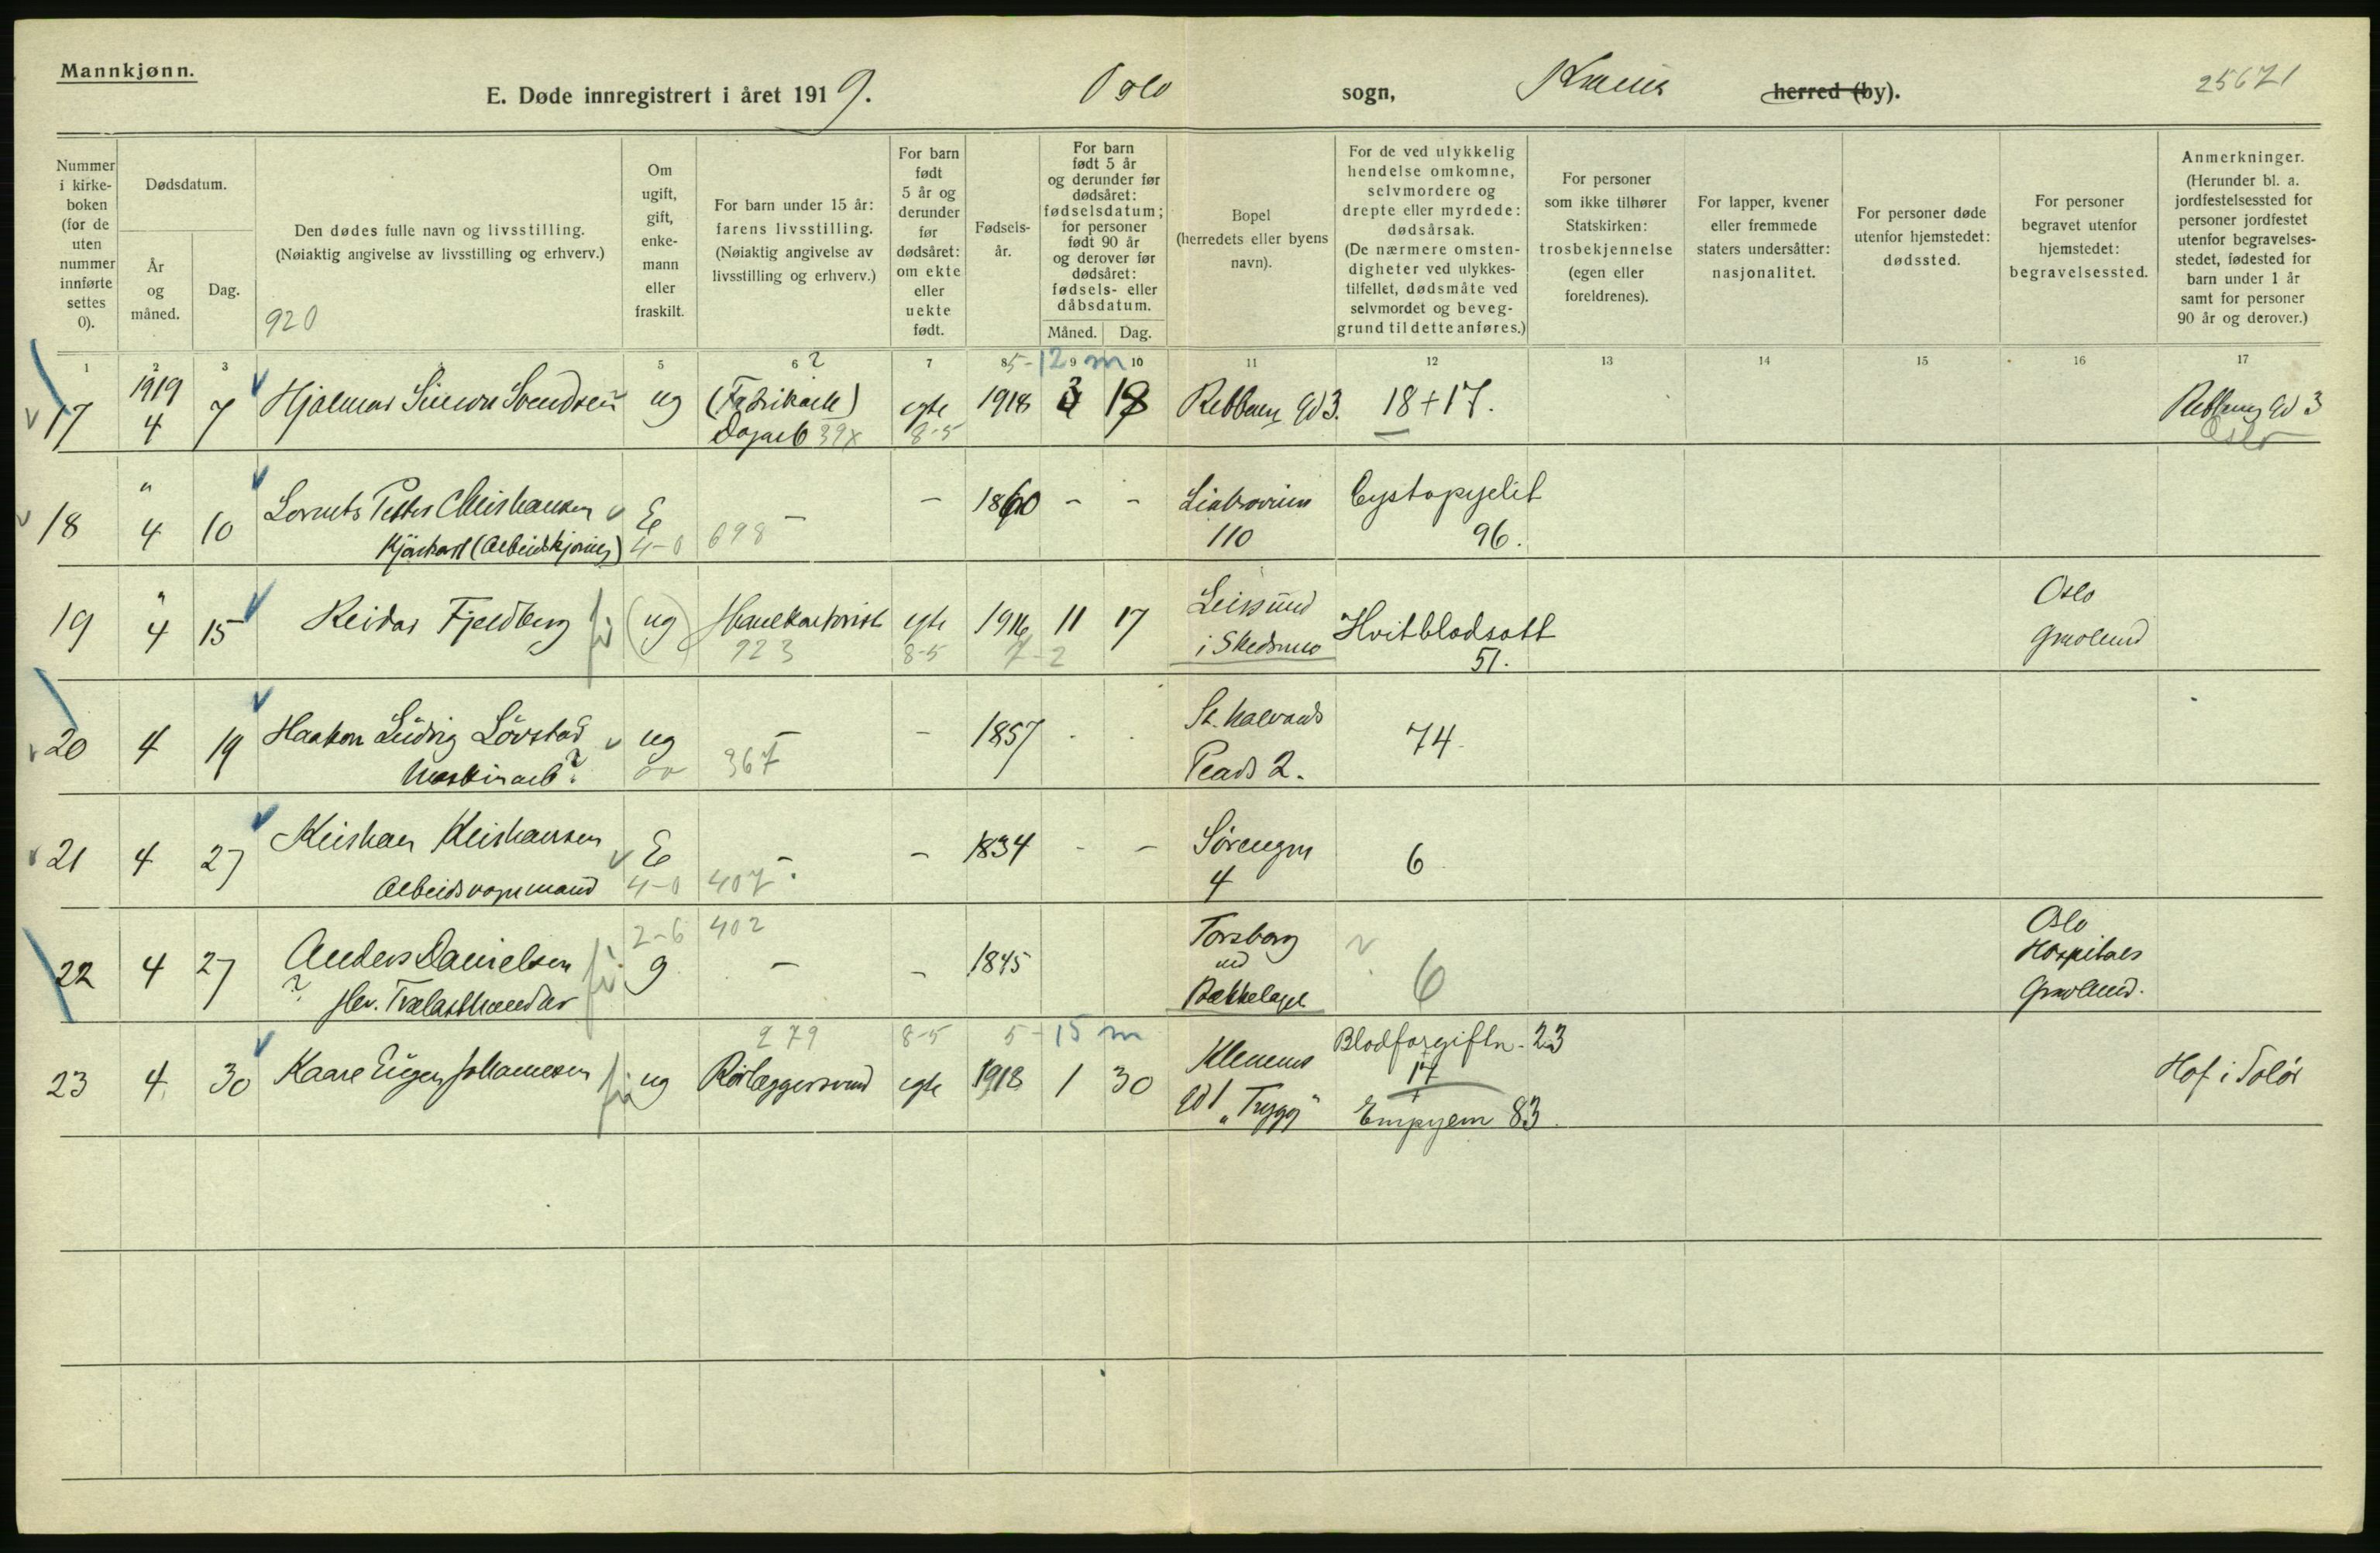 Mannkjønn.
E. Døde innregistrert i året 1919. Oslo sogn, herred (by). 25671
Nummer i kirke-boken (for de uten nummer innførte settes 0).
Dødsdatum.
År og måned.
Dag.
Den dødes fulle navn og livsstilling.
(Nøiaktig angivelse av livsstilling og erhverv.)
920
Om ugift, gift, enke-mann eller fraskilt.
For barn under 15 år: farens livsstilling.
(Nøiaktig angivelse av livsstilling og erhverv.)
For barn født 5 år og derunder før dødsåret: om ekte eller uekte født.
Fødsels-år.
For barn født 5 år og derunder før dødsåret: fødselsdatum; for personer født 90 år og derover før dødsåret: fødsels- eller dåbsdatum.
Måned. Dag.
Bopel
(herredets eller byens navn).
For de ved ulykkelig hendelse omkomne, selvmordere og drepte eller myrdede: dødsårsak.
(De nærmere omsten-digheter ved ulykkes-tilfellet, dødsmåte ved selvmordet og beveg-grund til dette anføres.)
For personer som ikke tilhører Statskirken: trosbekjennelse
(egen eller foreldrenes).
For lapper, kvener eller fremmede staters undersåtter: nasjonalitet.
For personer døde utenfor hjemstedet: dødssted.
For personer begravet utenfor hjemstedet: begravelsessted.
Anmerkninger.
(Herunder bl. a. jordfestelsessted for personer jordfestet utenfor begravelses-stedet, fødested for barn under 1 år samt for personer 90 år og derover.)
1 2 3 5 6 2 7 8 5-12 m 9 10 11 12 13 14 15 16 17
17 1919 4 7 Hjalmar Simon Svendsen ug (Fabrikarb) egte 1918 3 18 Rebberg Gd 3. 18+17. Rebberg Gd 3
Dagarb 39x 8-5 Oslo
18 " 4 10 Lorents Petter Christiansen E - - 1860 - - Liabroveien Cystopyelit
Kjørekarl (Arbeidskjøring) 4-0 698 110 96.
19 " 4 15 Reidar Fjeldberg (ug) Handelkontorist egte 1916 11 17 Leirsund Hvitblodsott Oslo
923 8-5 7-2 i Skedsmo 51. Gravlund
20 4 19 Haakon Ludvig Løvstad ug - - 1857 St. Halvards 74
Maskinarb? 00 367 Plads 2.
21 4 27 Kristian Kristiansen E - - 1834 - - Sørengen 6
Arbeidsvognmand 4-0 407 4
22 4 27 Anders Danielsen 2-6 g 402 - - 1845 Torsborg 6 Oslo
? fhv. Trælasthandler ved Bækkelaget Hospitals Gravlund.
279 8-5 5-15 m
23 4 30 Kaare Eugen Johannesen ug Rørlæggersvend egte 1918 1 30 Klemens Blodforgiftn. 23 Hof i Solør
Gd 1 "Trygg" 17 + Empyem 83.